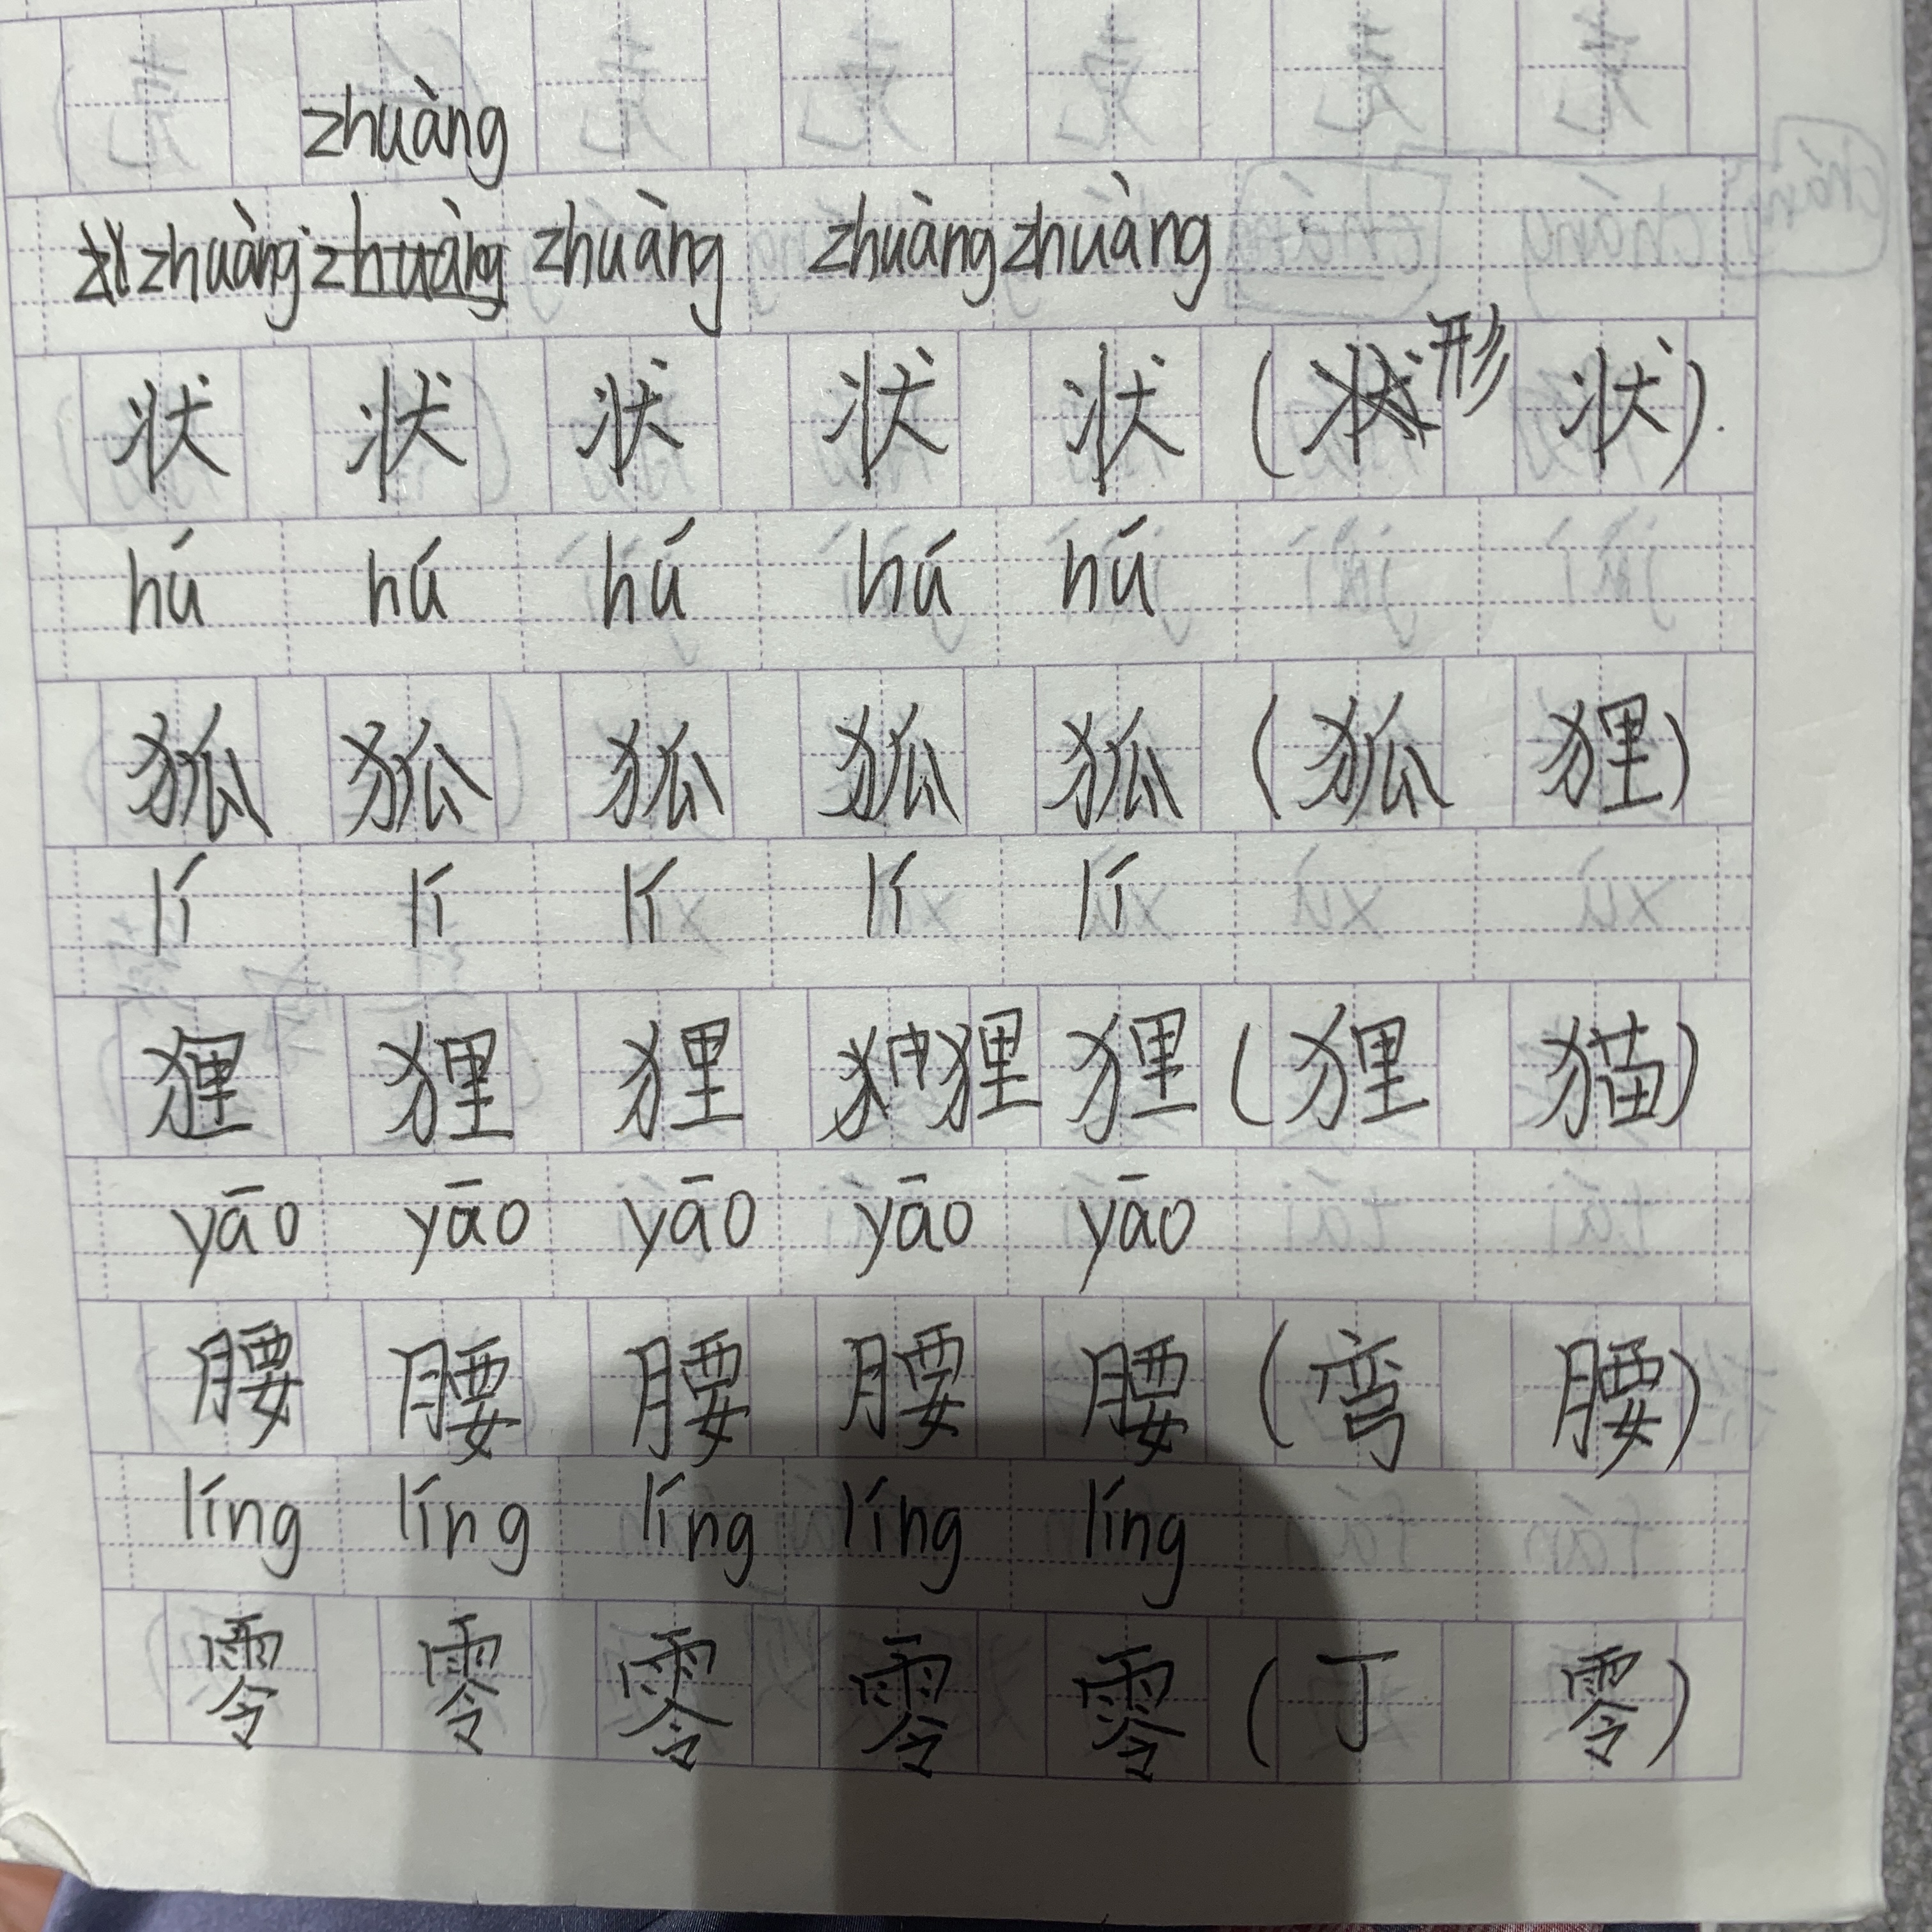 zhuàng
zhuàng zhuàng zhuàng zhuàng zhuàng
状 状 状 状 状 (状形 状).
hú hú hú hú hú
狐 狐 狐 狐 狐 (狐 狸)
lí lí lí lí lí
狸 狸 狸 狸 狸 (狸 猫)
yāo yāo yāo yāo yāo
腰 腰 腰 腰 腰 (弯 腰)
líng líng líng líng líng
零 零 零 零 零 (丁 零)